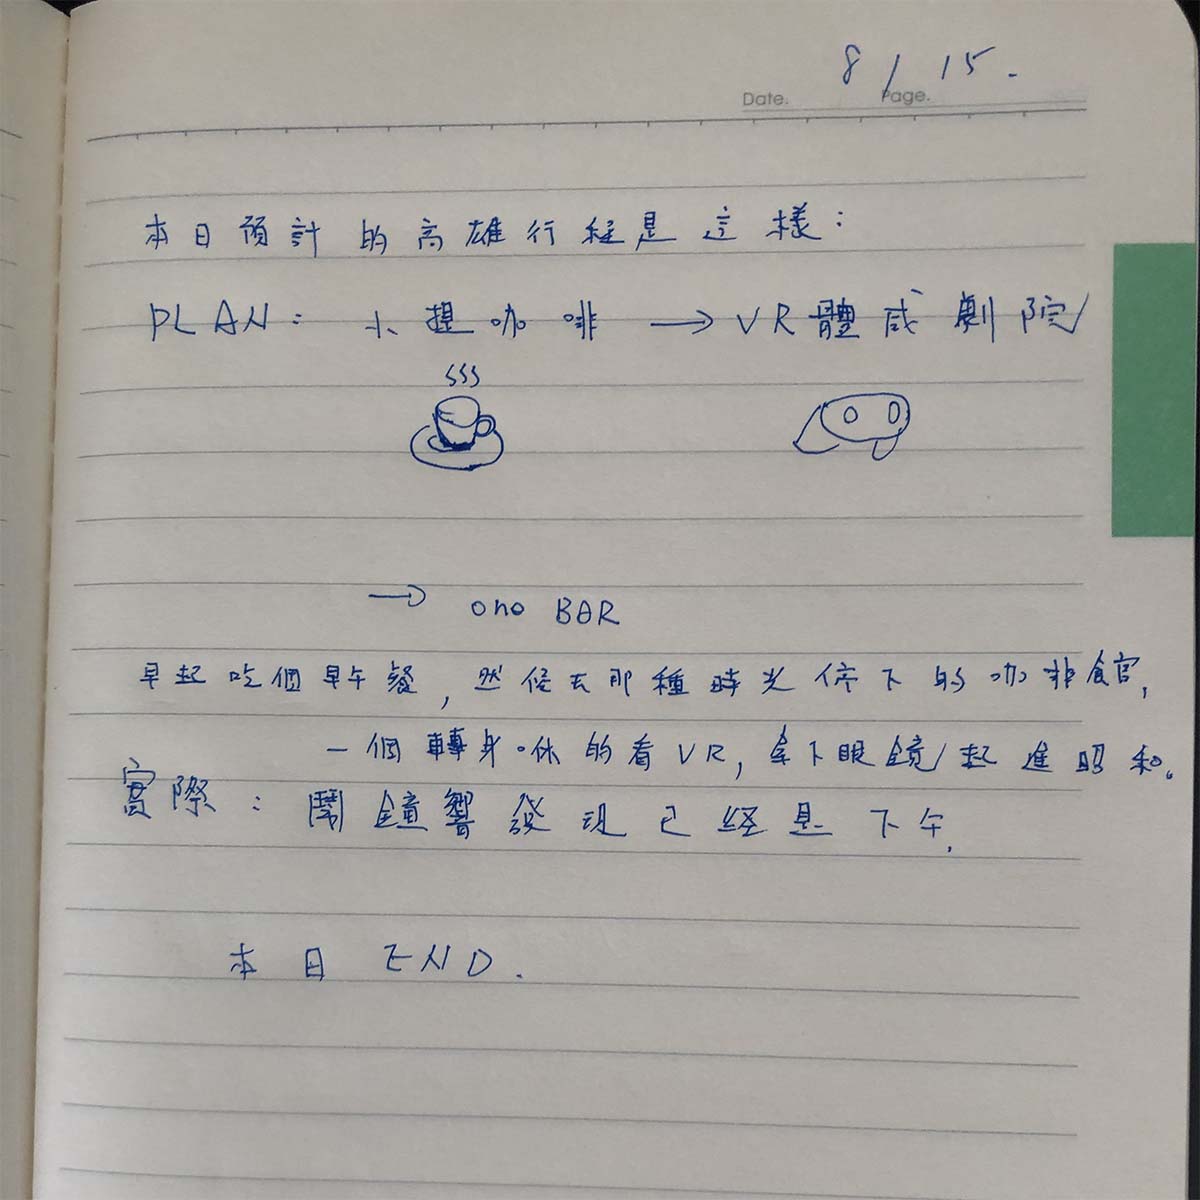 8/15.
Date. Page.
本日預計的高雄行程是這樣：
PLAN： 小堤咖啡 → VR體感劇院
→ ono BAR
早起吃個早午餐，然後去那種時光停下的咖啡館，
一個轉身 休的看VR，拿下眼鏡 起進昭和。
實際：鬧鐘響發現已經是下午.
本日 END.